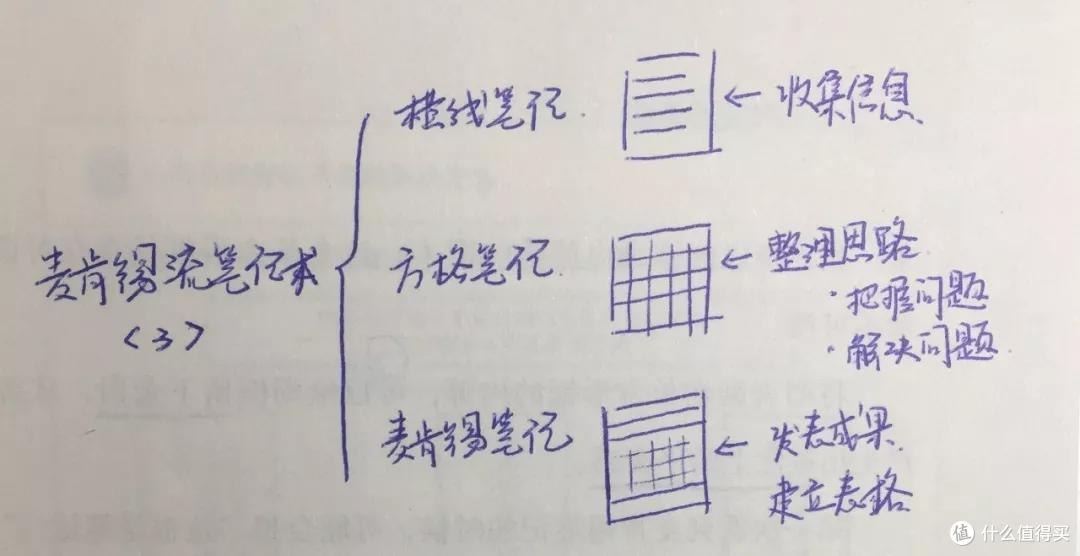 横线笔记
← 收集信息
麦肯锡流笔记术
<3>
方格笔记
← 整理思路
·把握问题
·解决问题
麦肯锡笔记
← 发表成果
建立表格
值 什么值得买